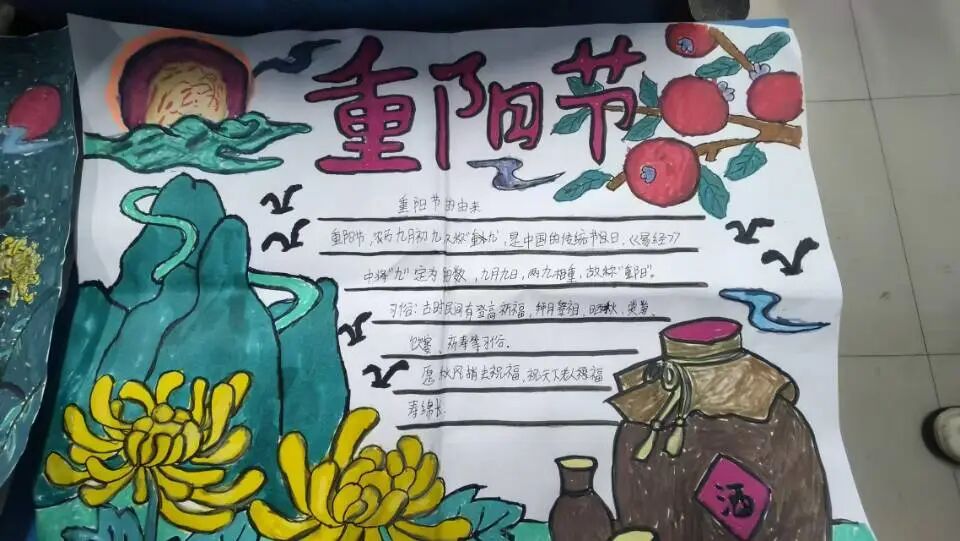 重阳节
重阳节的由来
重阳节,农历九月初九又称"重九",是中国的传统节日,《易经》
中将"九"定为阳数,九月九日,两九相重,故称"重阳"。
习俗:古时民间有登高祈福、拜月祭祖、
饮宴、祈寿等习俗。
愿秋风捎去祝福,祝天下老人福
寿绵长
酒